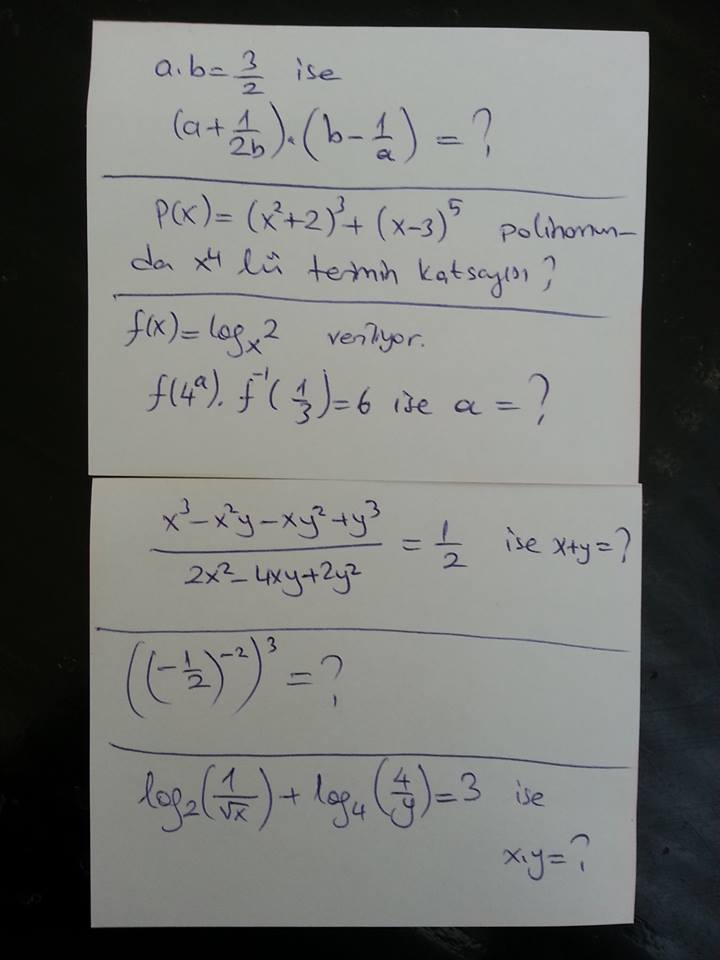 a.b = 3/2 ise
(a + 1/2b).(b - 1/a) = ?
P(x) = (x²+2)³ + (x-3)⁵ polinomun-
da x⁴ lü termin katsayısı ?
f(x) = logₓ2 veriliyor.
f(4ᵃ). f⁻¹(1/3) = 6 ise a = ?
(x³ - x²y - xy² + y³)/(2x² - 4xy + 2y²) = 1/2 ise x+y = ?
((-1/2)⁻²)³ = ?
log₂(1/√x) + log₄(4/y) = 3 ise
x.y = ?